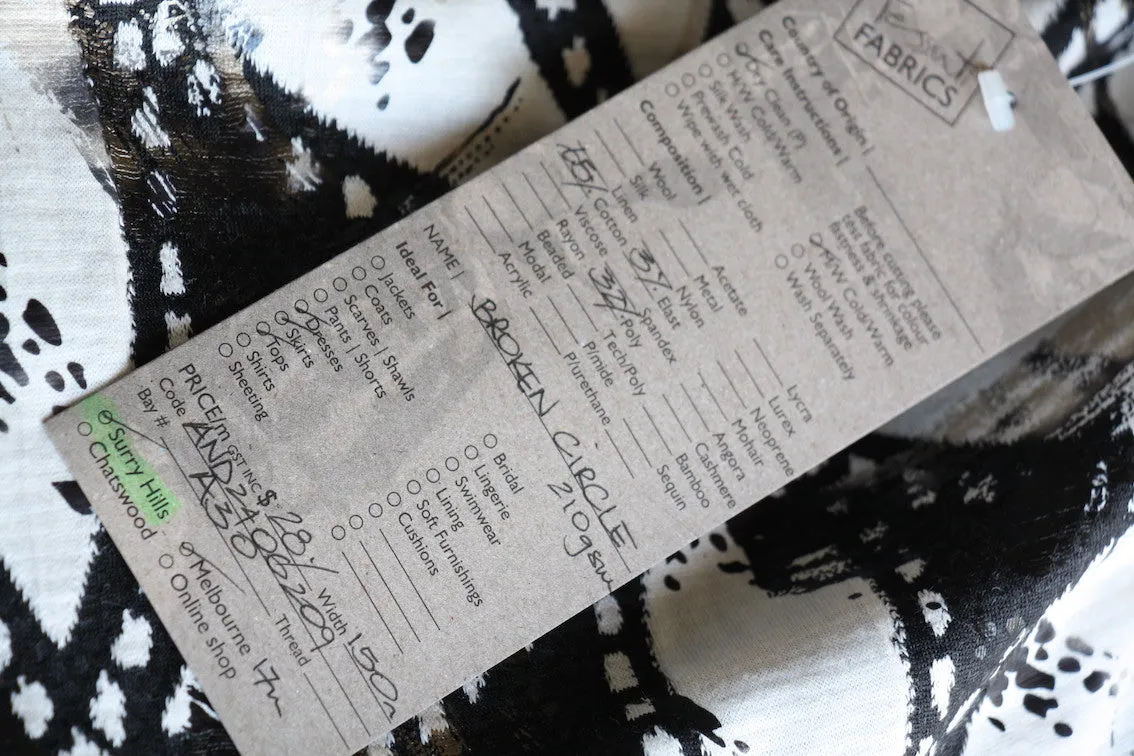 FABRICS
Country of Origin |
Care Instructions |
Dry Clean (P)
H/W Cold/Warm
Silk Wash
Prewash Cold
Wipe with wet cloth
Before cutting please
test fabric for colour
fastness & shrinkage
M/W Cold/Warm
Wool Wash
Wash Separately
Composition |
Wool
Silk
Linen
Cotton
Viscose
Rayon
Beaded
Modal
Acrylic
Acetate
Metal
Nylon
3% Elast
Spandex
Poly
Tech/Poly
P/mide
P/urethane
Lycra
Lurex
Neoprene
Mohair
Angora
Cashmere
Bamboo
Sequin
NAME | BROKEN CIRCLE
210gsm
Ideal For |
Jackets
Coats
Scarves | Shawls
Pants | Shorts
Dresses
Skirts
Tops
Shirts
Sheeting
Bridal
Lingerie
Swimwear
Lining
Soft Furnishings
Cushions
PRICE/m GST INC $ 28.- Width 150
Code AND2400G209
Bay # A30 Thread
Surry Hills
Chatswood
Melbourne 17m
Online shop